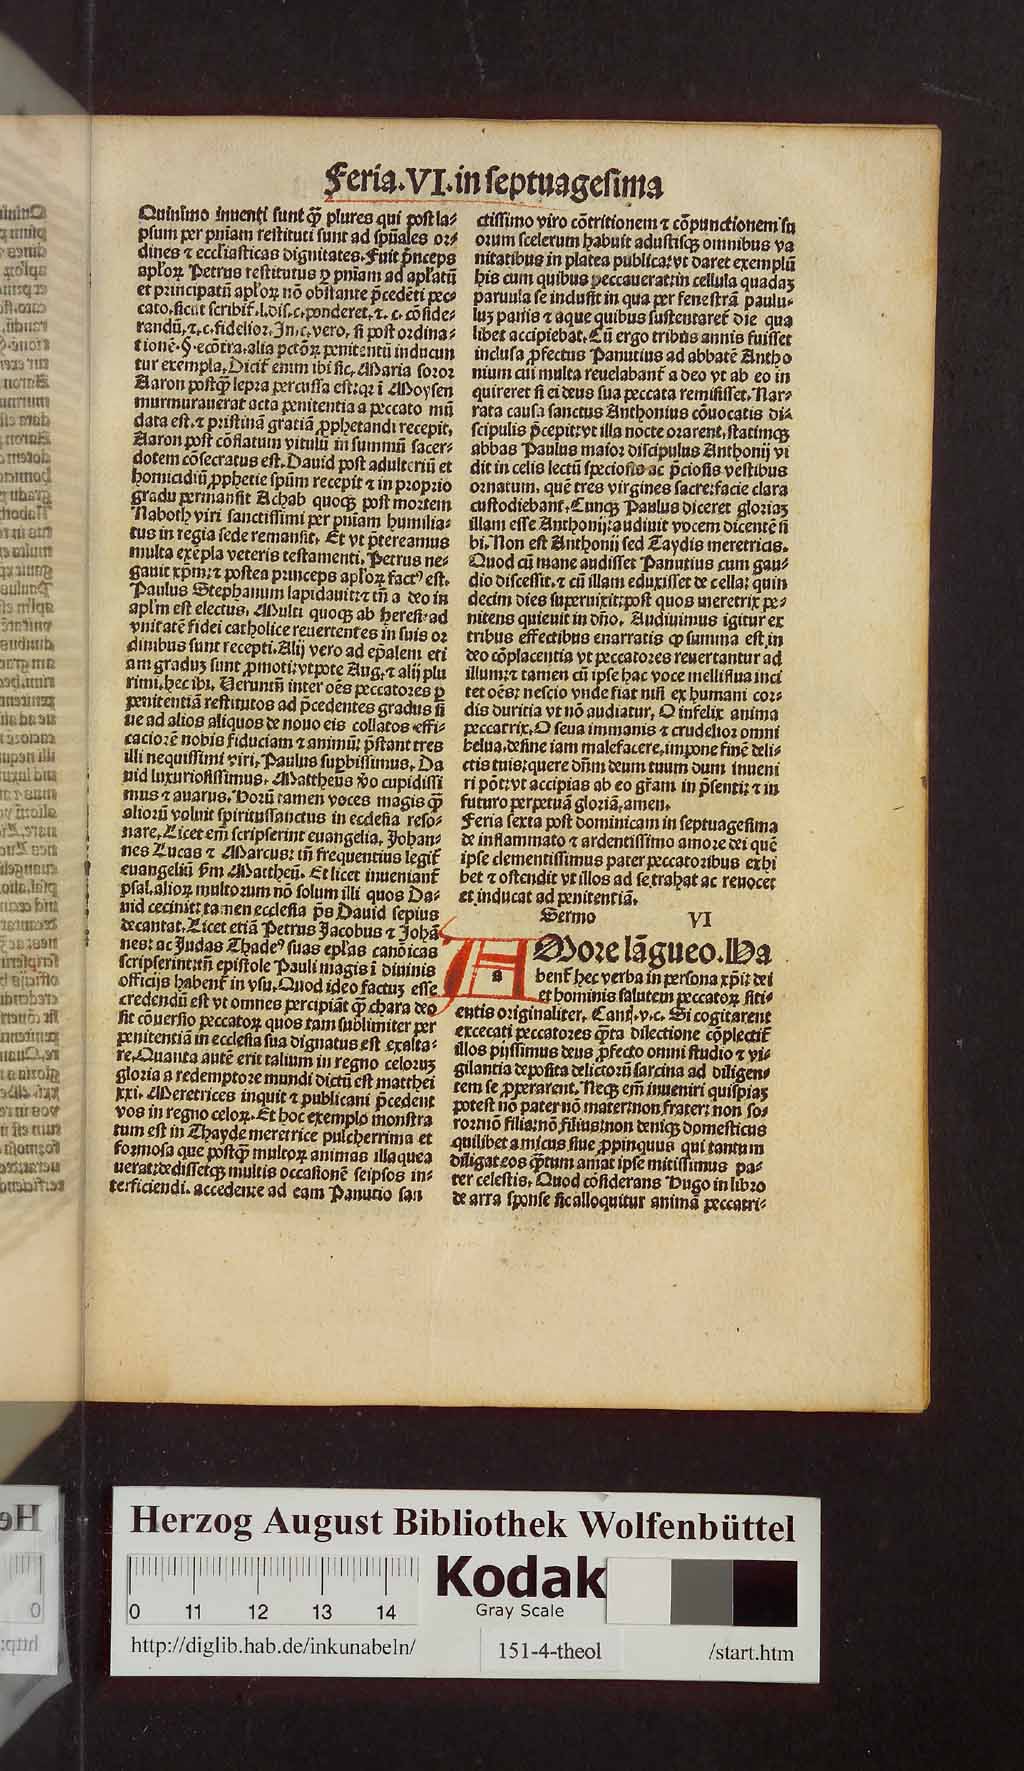 Feria.VI.in septuagesima
Quinimo inuenti sunt qƺ plures qui post la⸗
psum per pniam restituti sunt ad spuales or⸗
dines ⁊ ecclīasticas dignitates. Fuit p̄nceps
aploꝝ Petrus restitutus ꝑ pniam ad aplatū
et principatū aploꝝ nō obstante p̄cedēti pec⸗
cato, sicut scribit̄.l.dis.c.ponderet,⁊.c. cōside⸗
randū,⁊.c.fidelior. In.c.vero, si post ordina⸗
tionē.§.ecōtra.alia pctōꝝ penitentū inducun
tur exempla. Dicit̄ enim ibi sic, Maria soror
Aaron postqƺ lepra percussa est: qꝛ ī Moysen
murmurauerat acta penitentia a peccato mū
data est. ⁊ pristinā gratiā ꝓphetandi recepit.
Aaron post cōflatum vitulū in summū sacer⸗
dotem cōsecratus est. Dauid post adulteriū et
homicidiū ꝓphetie spūm recepit ⁊ in proprio
gradu permansit Achab quoqƺ post mortem
Naboth viri sanctissimi per pniam humilia⸗
tus in regia sede remansit. Et vt p̄tereamus
multa exēpla veteris testamenti. Petrus ne⸗
gauit xp̄m: ⁊ postea princeps aploꝝ fact᾽ est.
Paulus Stephanum lapidauit: ⁊ tn̄ a deo in
aplm̄ est electus. Multi quoqƺ ab heresi ad
vnitatē fidei catholice reuertentes in suis or
dinibus sunt recepti. Alij vero ad ep̄alem eti
am graduƺ sunt ꝓmoti: vtpote Aug.⁊ alij plu
rimi. hec ibi. Veruntn̄ inter oēs peccatores ꝑ
penitentiā restitutos ad p̄cedentes gradus si
ue ad alios aliquos de nouo eis collatos effi⸗
caciorē nobis fiduciam ⁊ animū: p̄stant tres
illi nequissimi viri. Paulus supbissimus. Da
uid luxuriosissimus. Mattheus v̄o cupidissi
mus ⁊ auarus. Horū tamen voces magis qƺ
aliorū voluit spiritussanctus in ecclesia reso⸗
nare. Licet em̄ scripserint euangelia. Johan⸗
nes Lucas ⁊ Marcus: tn̄ frequentius legit̄
euangeliū s̄m Mattheū. Et licet inueniant̄
psal.alioꝝ multorum nō solum illi quos Da⸗
uid cecinit: tamen ecclesia p̄s Dauid sepius
decantat. Licet etiā Petrus Jacobus ⁊ Johā
nes: ac Judas Thade᾽ suas eplas canōicas
scripserint: tn̄ epistole Pauli magis ī diuinis
officijs habent̄ in vsu. Quod ideo factuƺ esse
credendū est vt omnes percipiāt qƺ chara deo
sit cōuersio peccatoꝝ quos tam sublimiter per
penitentiā in ecclesia sua dignatus est exalta⸗
re. Quanta autē erit talium in regno celoruƺ
gloria a redemptore mundi dictū est matthei
xxi. Meretrices inquit ⁊ publicani p̄cedent
vos in regno celoꝝ. Et hoc exemplo monstra
tum est in Thayde meretrice pulcherrima et
formosa que postqƺ multoꝝ animas illaquea
uerat: dedissetqƺ multis occasionē seipsos in⸗
terficiendi. accedente ad eam Panutio san
ctissimo viro cōtritionem ⁊ cōpunctionem su
orum scelerum habuit adustisqƺ omnibus va
nitatibus in platea publica: vt daret exemplū
his cum quibus peccauerat: in cellula quadaƺ
paruula se inclusit in qua per fenestrā paulu⸗
luƺ panis ⁊ aque quibus sustentaret̄ die qua
libet accipiebat. Cū ergo tribus annis fuisset
inclusa ꝓfectus Panutius ad abbatē Antho
nium cui multa reuelabant̄ a deo vt ab eo in
quireret si ei deus sua peccata remisisset. Nar⸗
rata causa sanctus Anthonius cōuocatis di⸗
scipulis p̄cepit: vt illa nocte orarent. statimqƺ
abbas Paulus maior discipulus Anthonij vi
dit in celis lectū speciosis ac p̄ciosis vestibus
ornatum. quē tres virgines sacre: facie clara
custodiebant. Cunqƺ Paulus diceret gloriaƺ
illam esse Anthonij: audiuit vocem dicentē si
bi. Non est Anthonij sed Taydis meretricis.
Quod cū mane audisset Panutius cum gau⸗
dio discessit. ⁊ cū illam eduxisset de cella: quin
decim dies superuixit: post quos meretrix pe⸗
nitens quieuit in dño. Audiuimus igitur ex
tribus effectibus enarratis ꝙ summa est in
deo cōplacentia vt peccatores reuertantur ad
illum: ⁊ tamen cū ipse hac voce melliflua inci
tet oēs: nescio vnde fiat nisi ex humani cor⸗
dis duritia vt nō audiatur. O infelix anima
peccatrix. O seua immanis ⁊ crudelior omni
belua. desine iam malefacere. impone finē deli⸗
ctis tuis: quere dn̄m deum tuum dum inueni
ri pōt: vt accipias ab eo gr̄am in p̄senti: ⁊ in
futuro perpetuā gloriā. amen.
Feria sexta post dominicam in septuagesima
de inflammato ⁊ ardentissimo amore dei quē
ipse clementissimus pater peccatoribus exhi
bet ⁊ ostendit vt illos ad se trahat ac reuocet
et inducat ad penitentiā.
Sermo VI
A More lāgueo. Ha
bent̄ hec verba in persona xp̄i: dei
et hominis salutem peccatoꝝ siti⸗
entis originaliter. Cant̄.v.c. Si cogitarent
excecati peccatores qƺta dilectione cōplectit̄
illos pijssimus deus ꝓfecto omni studio ⁊ vi⸗
gilantia deposita delictorū sarcina ad diligen⸗
tem se ꝓperarent. Neqƺ em̄ inueniri quispiaƺ
potest nō pater nō mater: non frater: non so⸗
ror: nō filia: nō filius: non deniqƺ domesticus
quilibet amicus siue ꝓpinquus qui tantum
diligat eos qƺtum amat ipse mitissimus pa⸗
ter celestis. Quod cōsiderans Hugo in libro
de arra sponse sic alloquitur animā peccatri⸗
Herzog August Bibliothek Wolfenbüttel
Kodak
Gray Scale
0 11 12 13 14
http://diglib.hab.de/inkunabeln/ 151-4-theol /start.htm